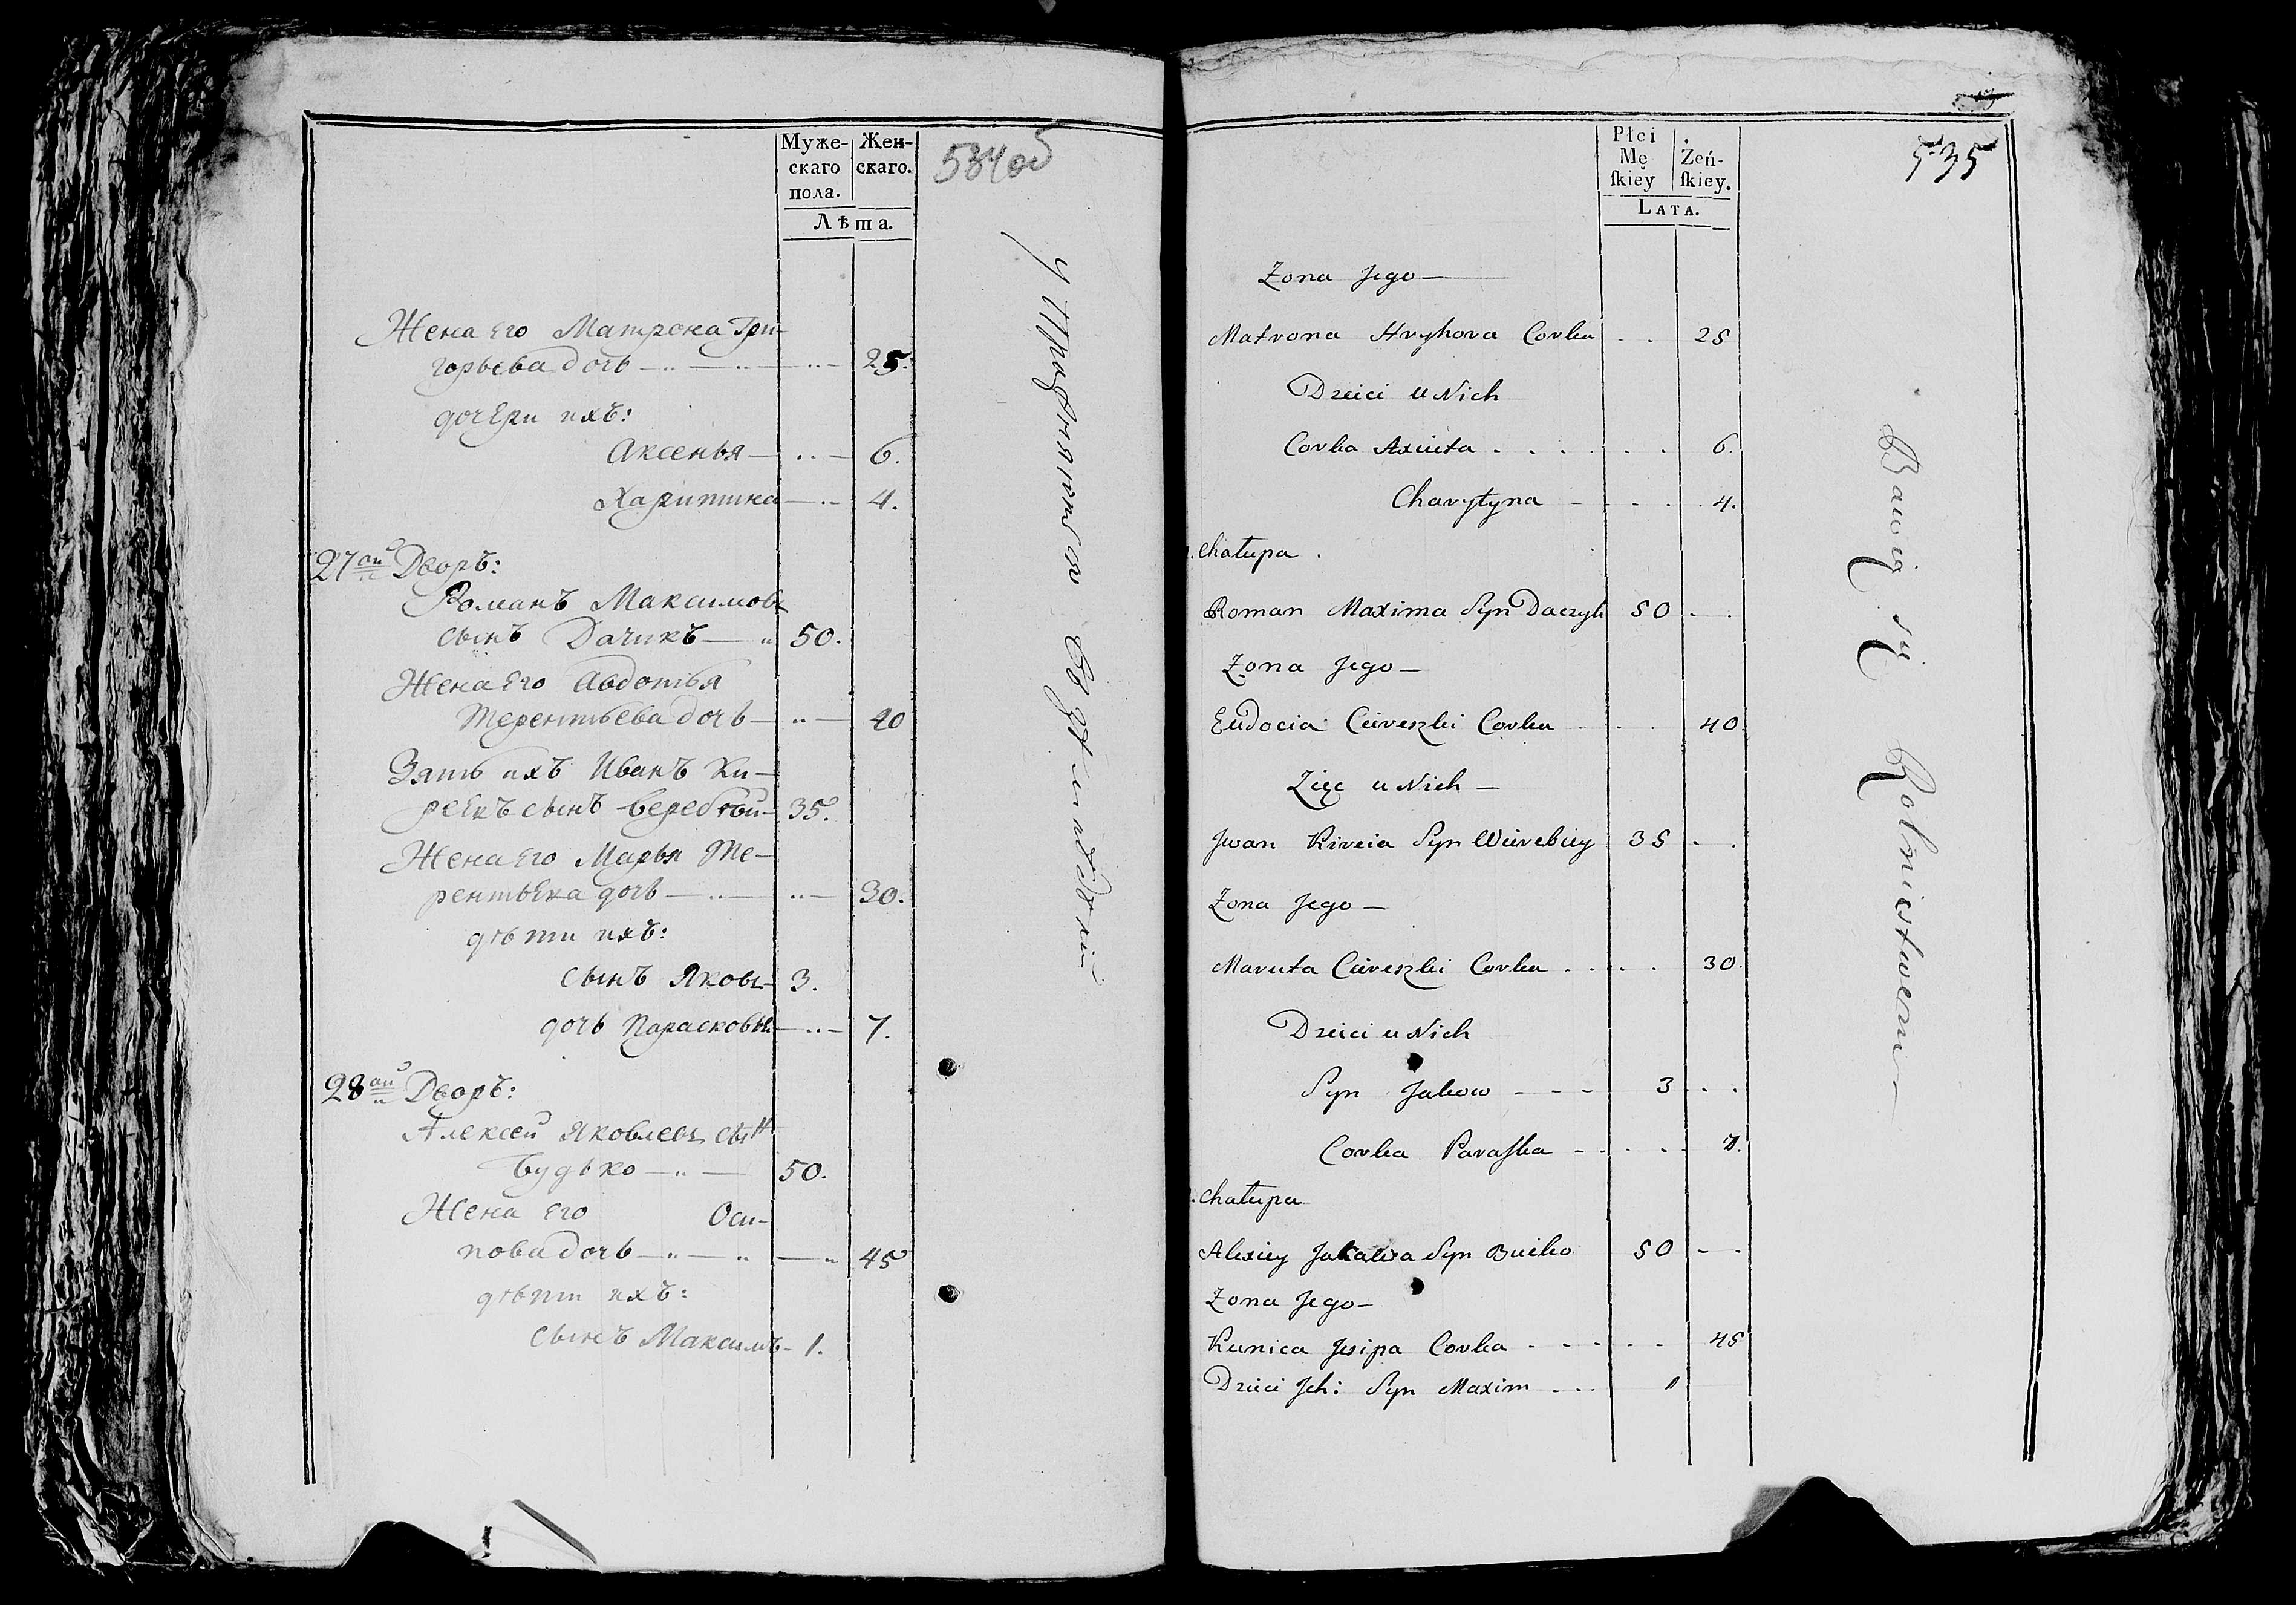 Муже-
скаго
пола.
Жен-
скаго.
Лѣта.
534об
Жена его Матрона Гри-
горьева дочь 25.
дочери ихъ:
Аксенья 6.
Харитина 4.
27ой Дворъ:
Романъ Максимовъ
сынъ Дачикъ 50.
Жена его Авдотья
Терентьева дочь 40
Зять ихъ Иванъ Ки-
реевъ сынъ Веребѣй 35.
Жена его Марья Те-
рентьева дочь 30.
дѣти ихъ:
сынъ Яковъ 3.
дочь Парасковья 7.
28ой Дворъ:
Алексей Яковлевъ сынъ
Будько 50.
Жена его Оси-
пова дочь 45
дѣти ихъ:
сынъ Максимъ 1.
Упражняются въ
Płci
Mę
ſkiey
Żeń-
ſkiey.
LATA.
535
Zona Jego
Matrona Hryhora Corka 25
Dzieci u Nich
Corka Axiuta 6.
Charytyna 4.
chałupa
Roman Maxima Syn Daczyk 50
Zona Jego
Eudocia Cireszki Corka 40
Zięc u Nich
Jwan Kireia Syn Wierebiey 35
Zona Jego
Maruta Cireszki Corka 30
Dzieci u Nich
Syn Jakow 3
Corka Paraſka 7.
chałupa
Alexiey Jakowa Syn Budko 50
Zona Jego
Kunica Jesipa Corka 45
Dzieci Jch: Syn Maxim 1
Bawią się Rolnictwem